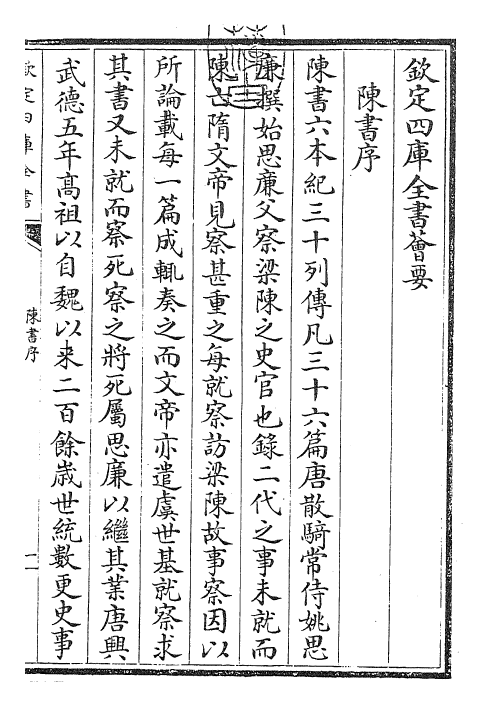 欽定四庫全書薈要
陳書序
陳書六本紀三十列傳凡三十六篇唐散騎常侍姚思
廉撰始思廉父察梁陳之史官也錄二代之事未就而
陳亡隋文帝見察甚重之每就察訪梁陳故事察因以
所論載每一篇成輒奏之而文帝亦遣虞世基就察求
其書又未就而察死察之將死屬思廉以繼其業唐興
武德五年髙祖以自魏以来二百餘歲世統數更史事
欽定四庫全書
陳書序
一